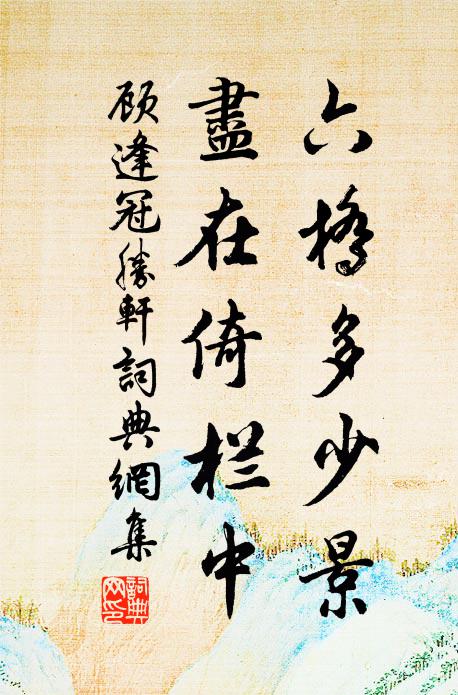 六橋多少景
盡在倚栏中
顾逢冠勝軒詞典網集
詞典网印